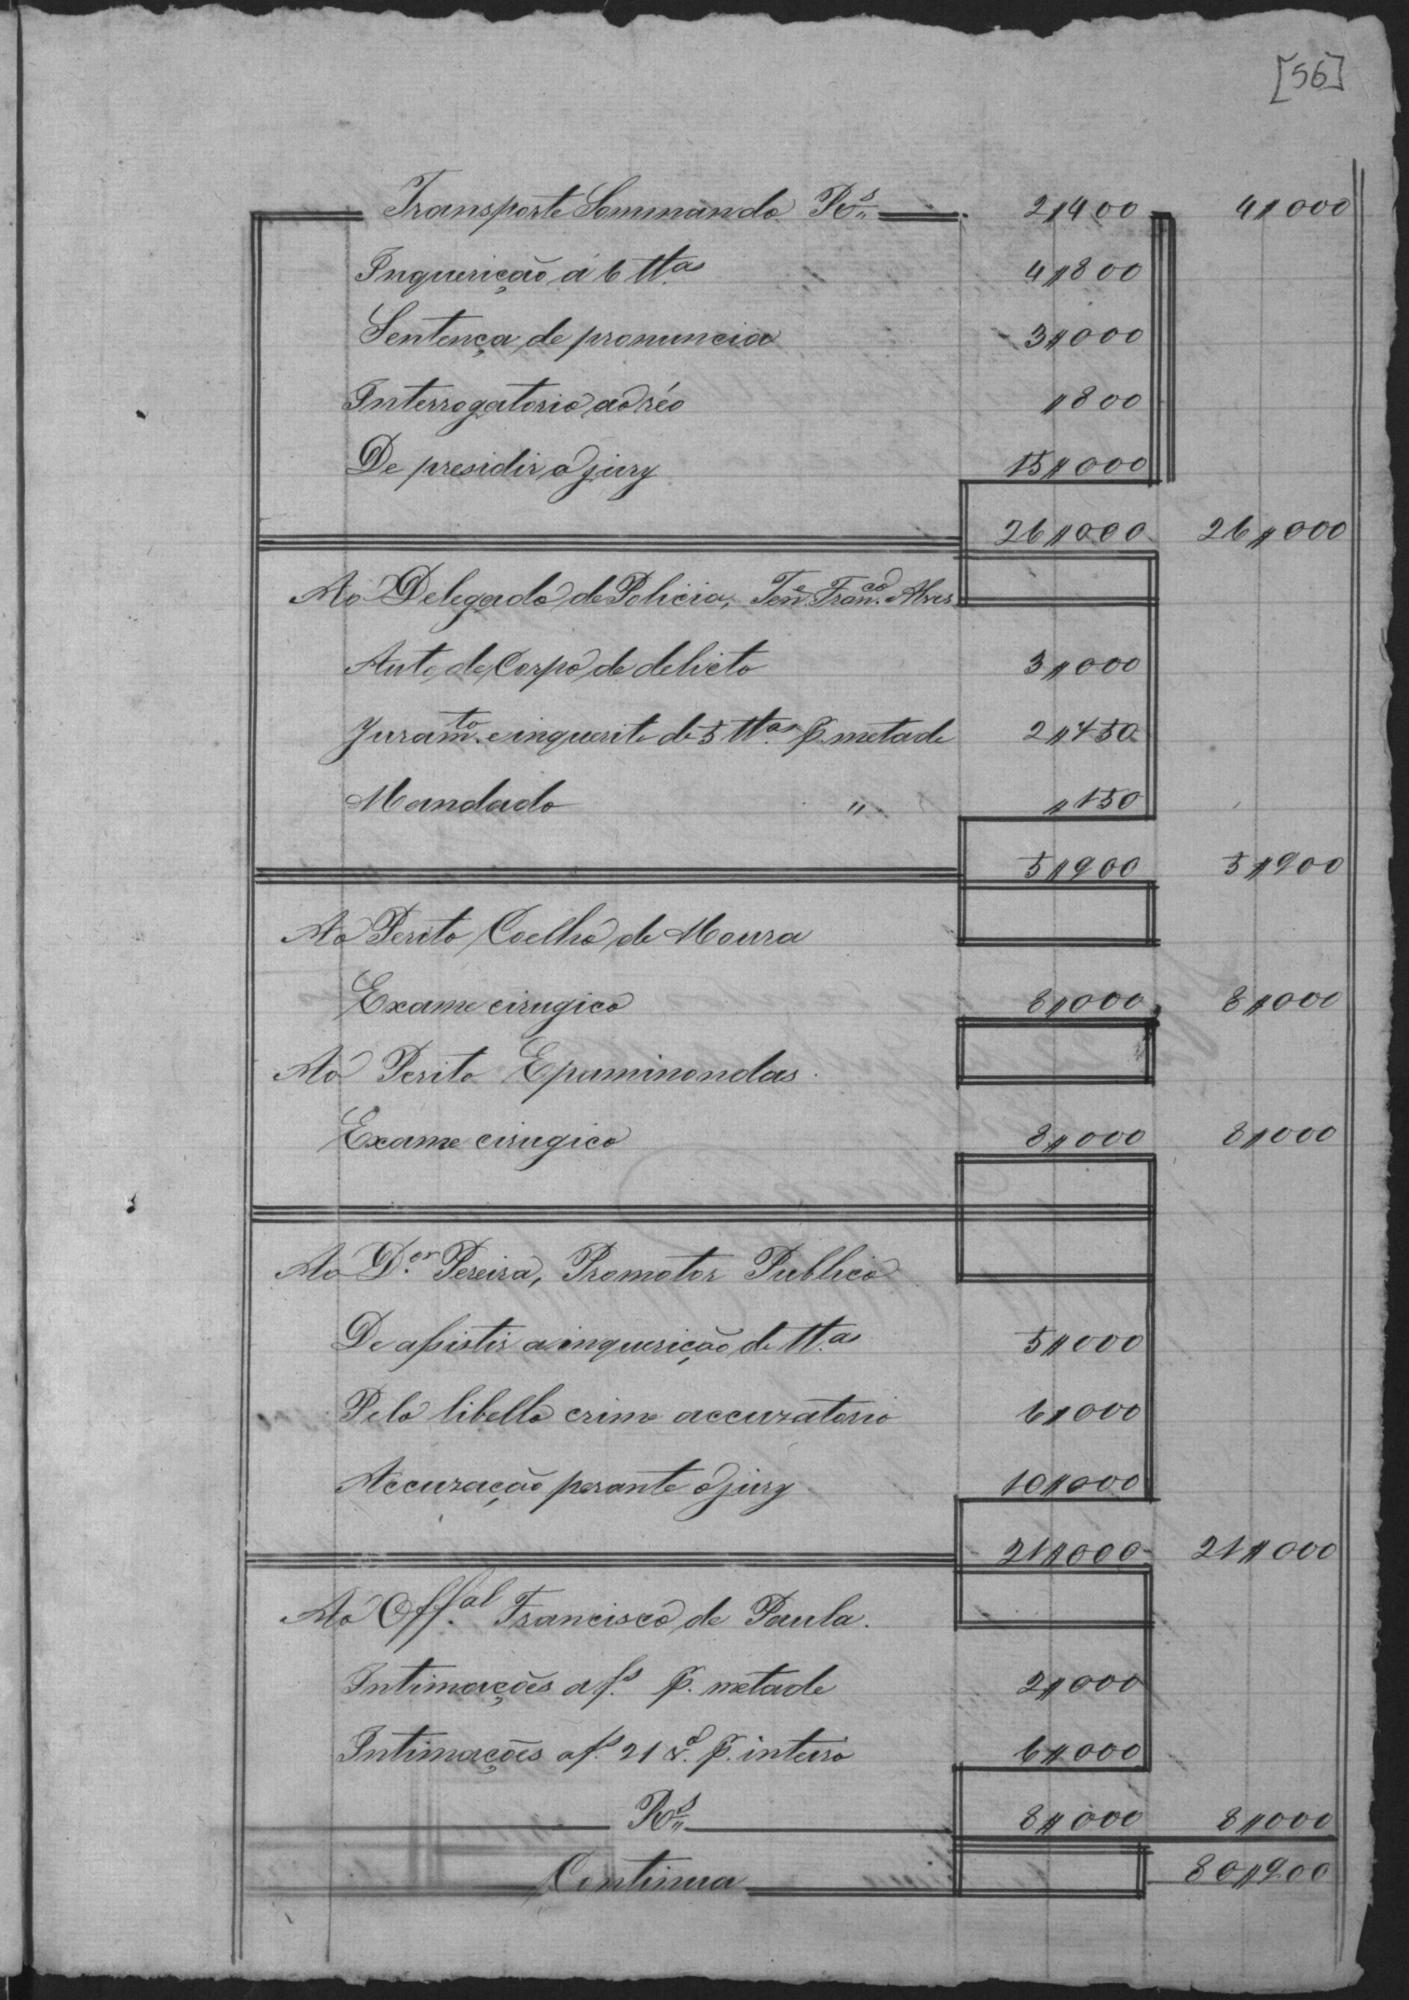 [56]
Transporte Sommando Rs. 2$400 4$000
Inquerição á 6 ttas 4$800
Sentença de pronuncia 3$000
Interrogatorio ao réo $800
De presidir o jury 15$000
26$000 26$000
Ao Delegado de Policia, Tene. Franco. Alves
Auto de Corpo de delicto 3$000
Juramto. e inquerito de 5 ttas p. metade 2$750
Mandado " $150
5$900 5$900
Ao Perito Coelho de Moura
Exame cirugico 8$000 8$000
Ao Perito Epaminondas.
Exame cirugico 8$000 8$000
Ao Dor. Pereira, Promotor Publico
De assistir a inquerição de ttas 5$000
Pelo libello crime accuzatorio 6$000
Accuzação perante o jury 10$000
21$000 21$000
Ao Offal. Francisco de Paula.
Intimações a fs. p. metade 2$000
Intimações a fs. 21 p. inteiro 6$000
Rs. 8$000 8$000
Continua 80$900